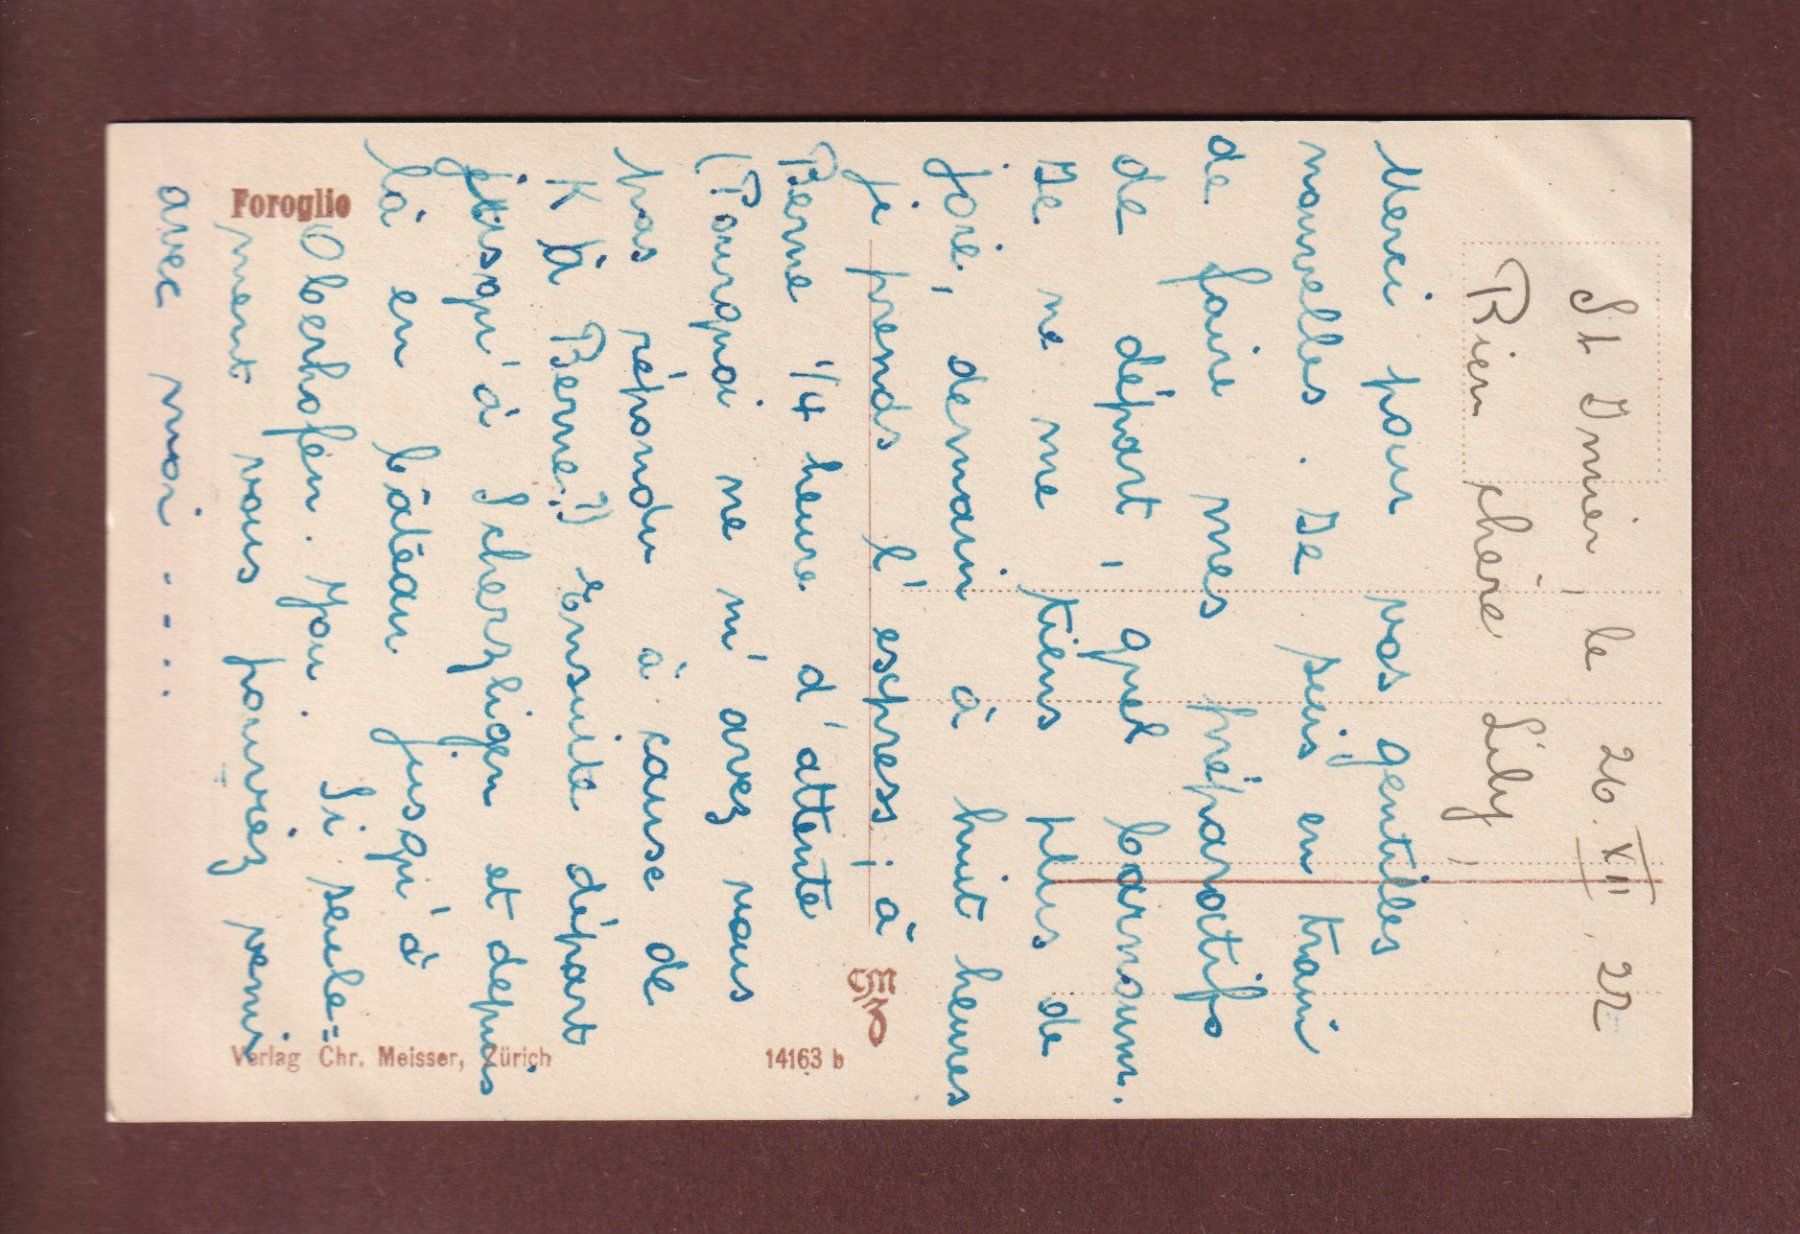 St Imier, le 26. XII 22
Bien chère Lily,
Merci pour vos gentiles
nouvelles. Je suis en train
de faire mes préparatifs
de départ, quel barnoum.
Je ne me tiens plus de
joie, demain à huit heures
je prends l'express; à
Berne 1/4 heure d'attente
(Pourquoi ne m'avez vous
pas répondu à cause de
K à Berne?) ensuite départ
jusqu'à Scherzligen et depuis
là en bâteau jusqu'à
Oberhofen. You. Si seule=
ment vous pouviez venir
avec moi . . . .
Foroglio
Verlag Chr. Meisser, Zürich
14163 b
CMZ